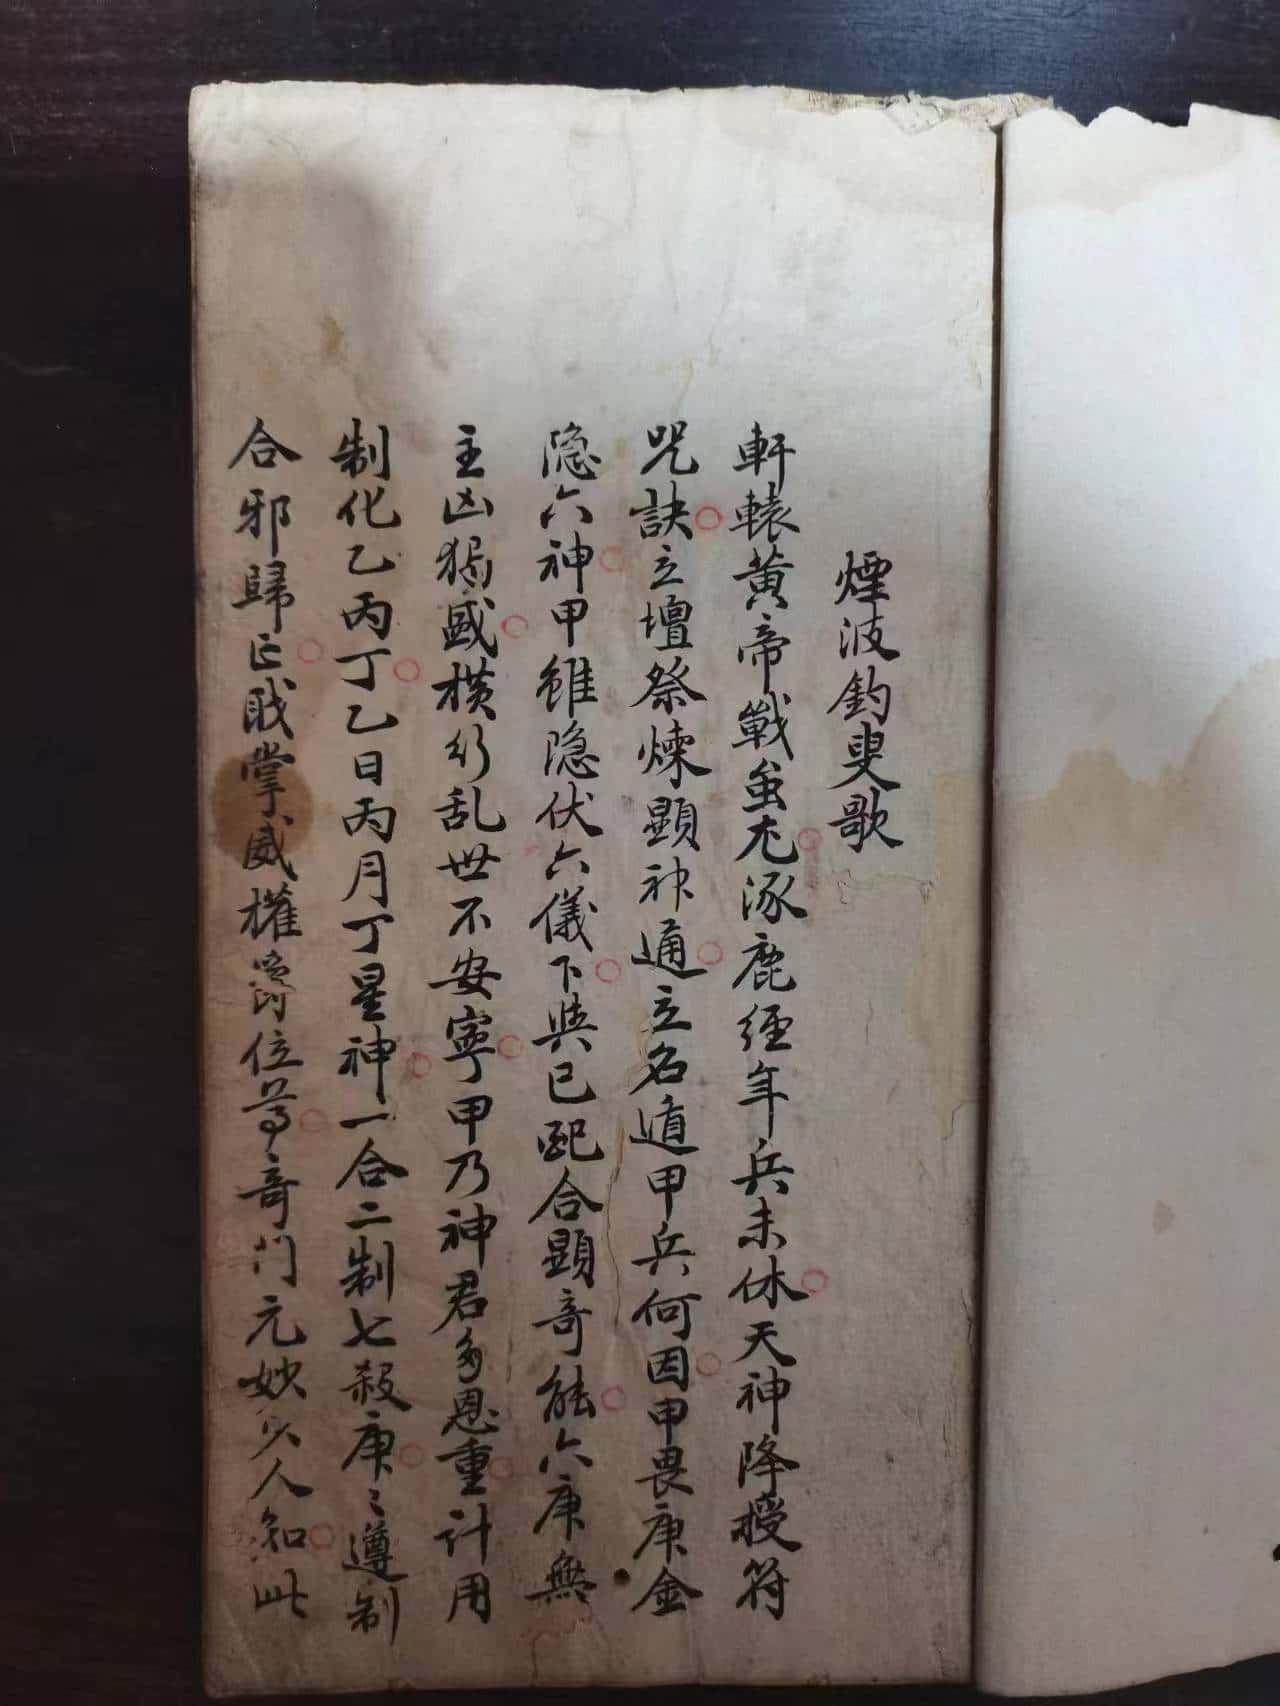 煙波釣叟歌
軒轅黃帝戰蚩尤涿鹿經年兵未休天神降授符
咒訣立壇祭煉顯神通立名遁甲兵何因甲畏庚金
隐六神甲雖隐伏六儀下與己配合顯奇能六庚無
主凶猖盛横行乱世不安寧甲乃神君多恩重計用
制化乙丙丁乙日丙月丁星神一合二制七殺庚〻遵制
合邪歸正戝掌威權爵位尊奇門元妙少人知此